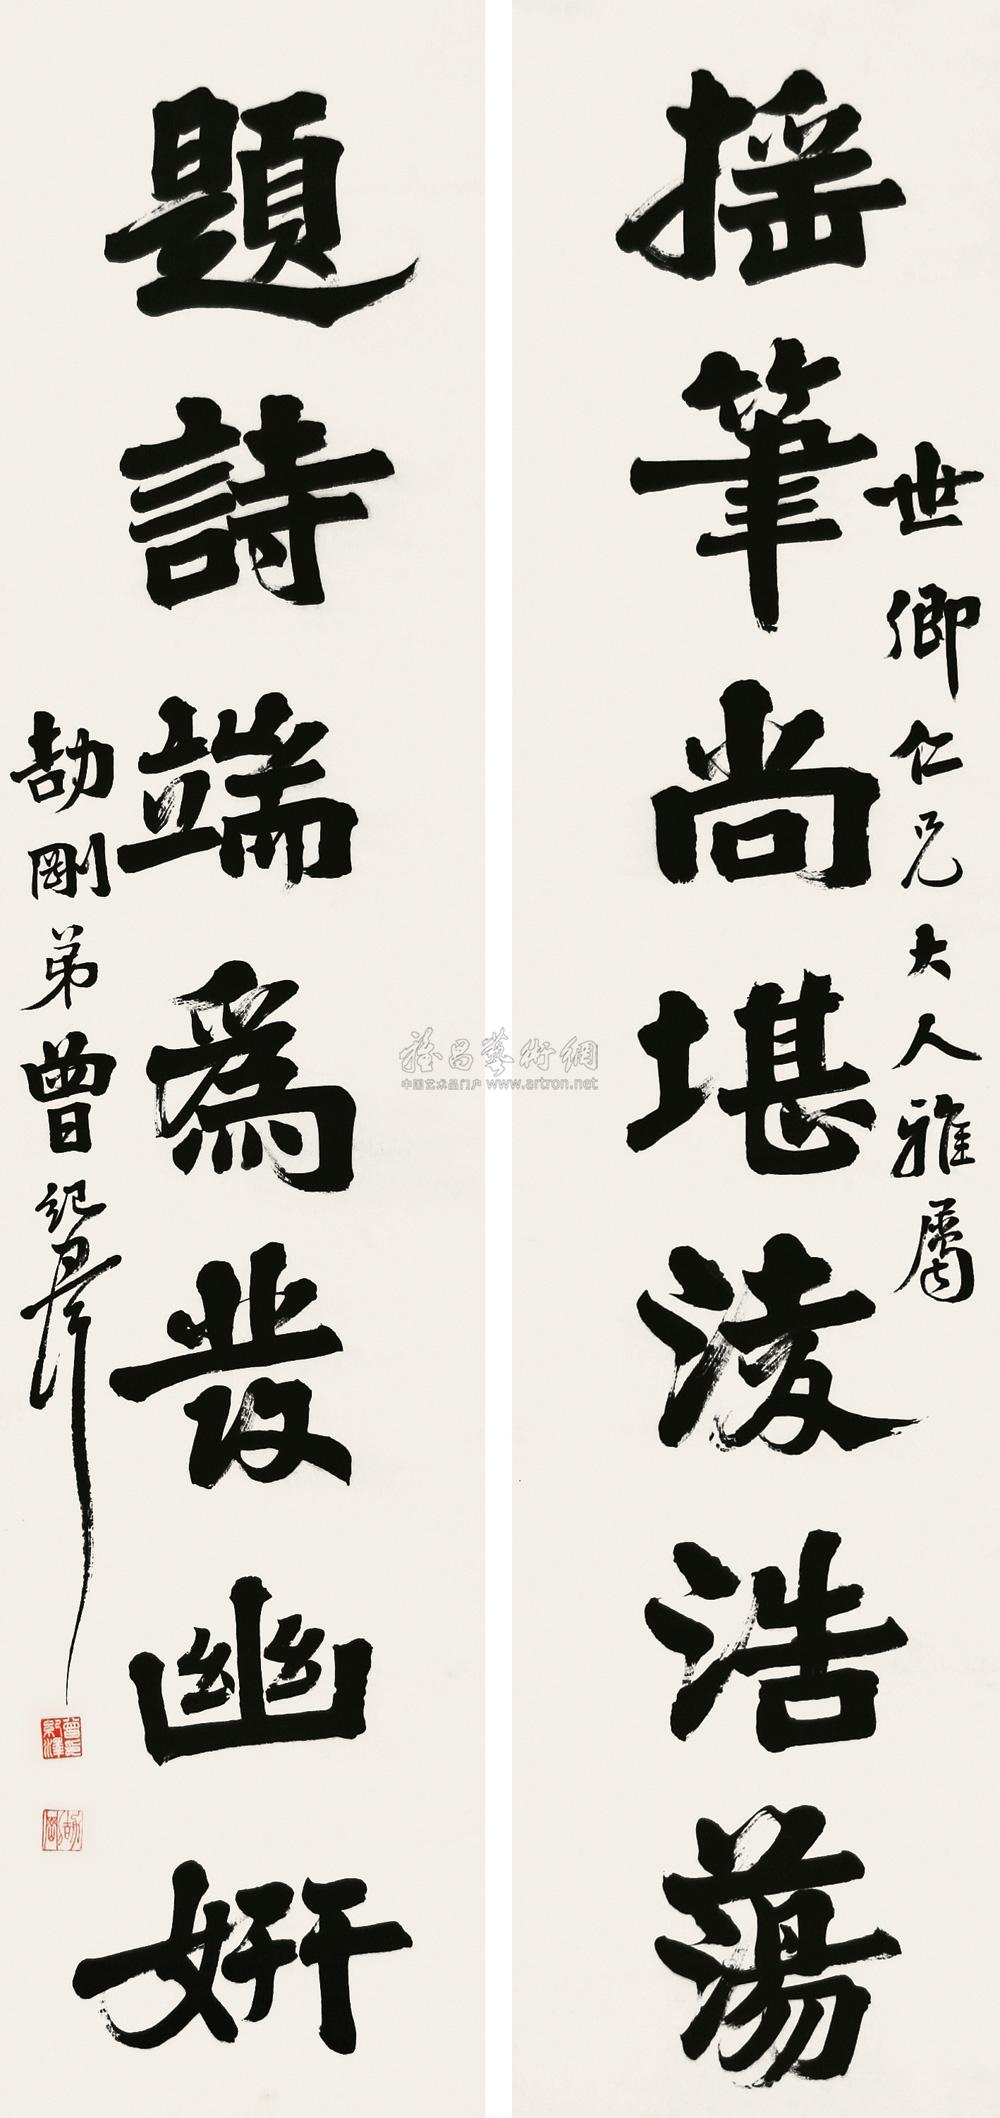 搖筆尚堪淩浩蕩
世卿仁兄大人雅屬
題詩端為發幽妍
劼剛弟曾紀澤
曾紀澤
劼剛
雅昌藝術網
中国艺术品门户 www.artron.net